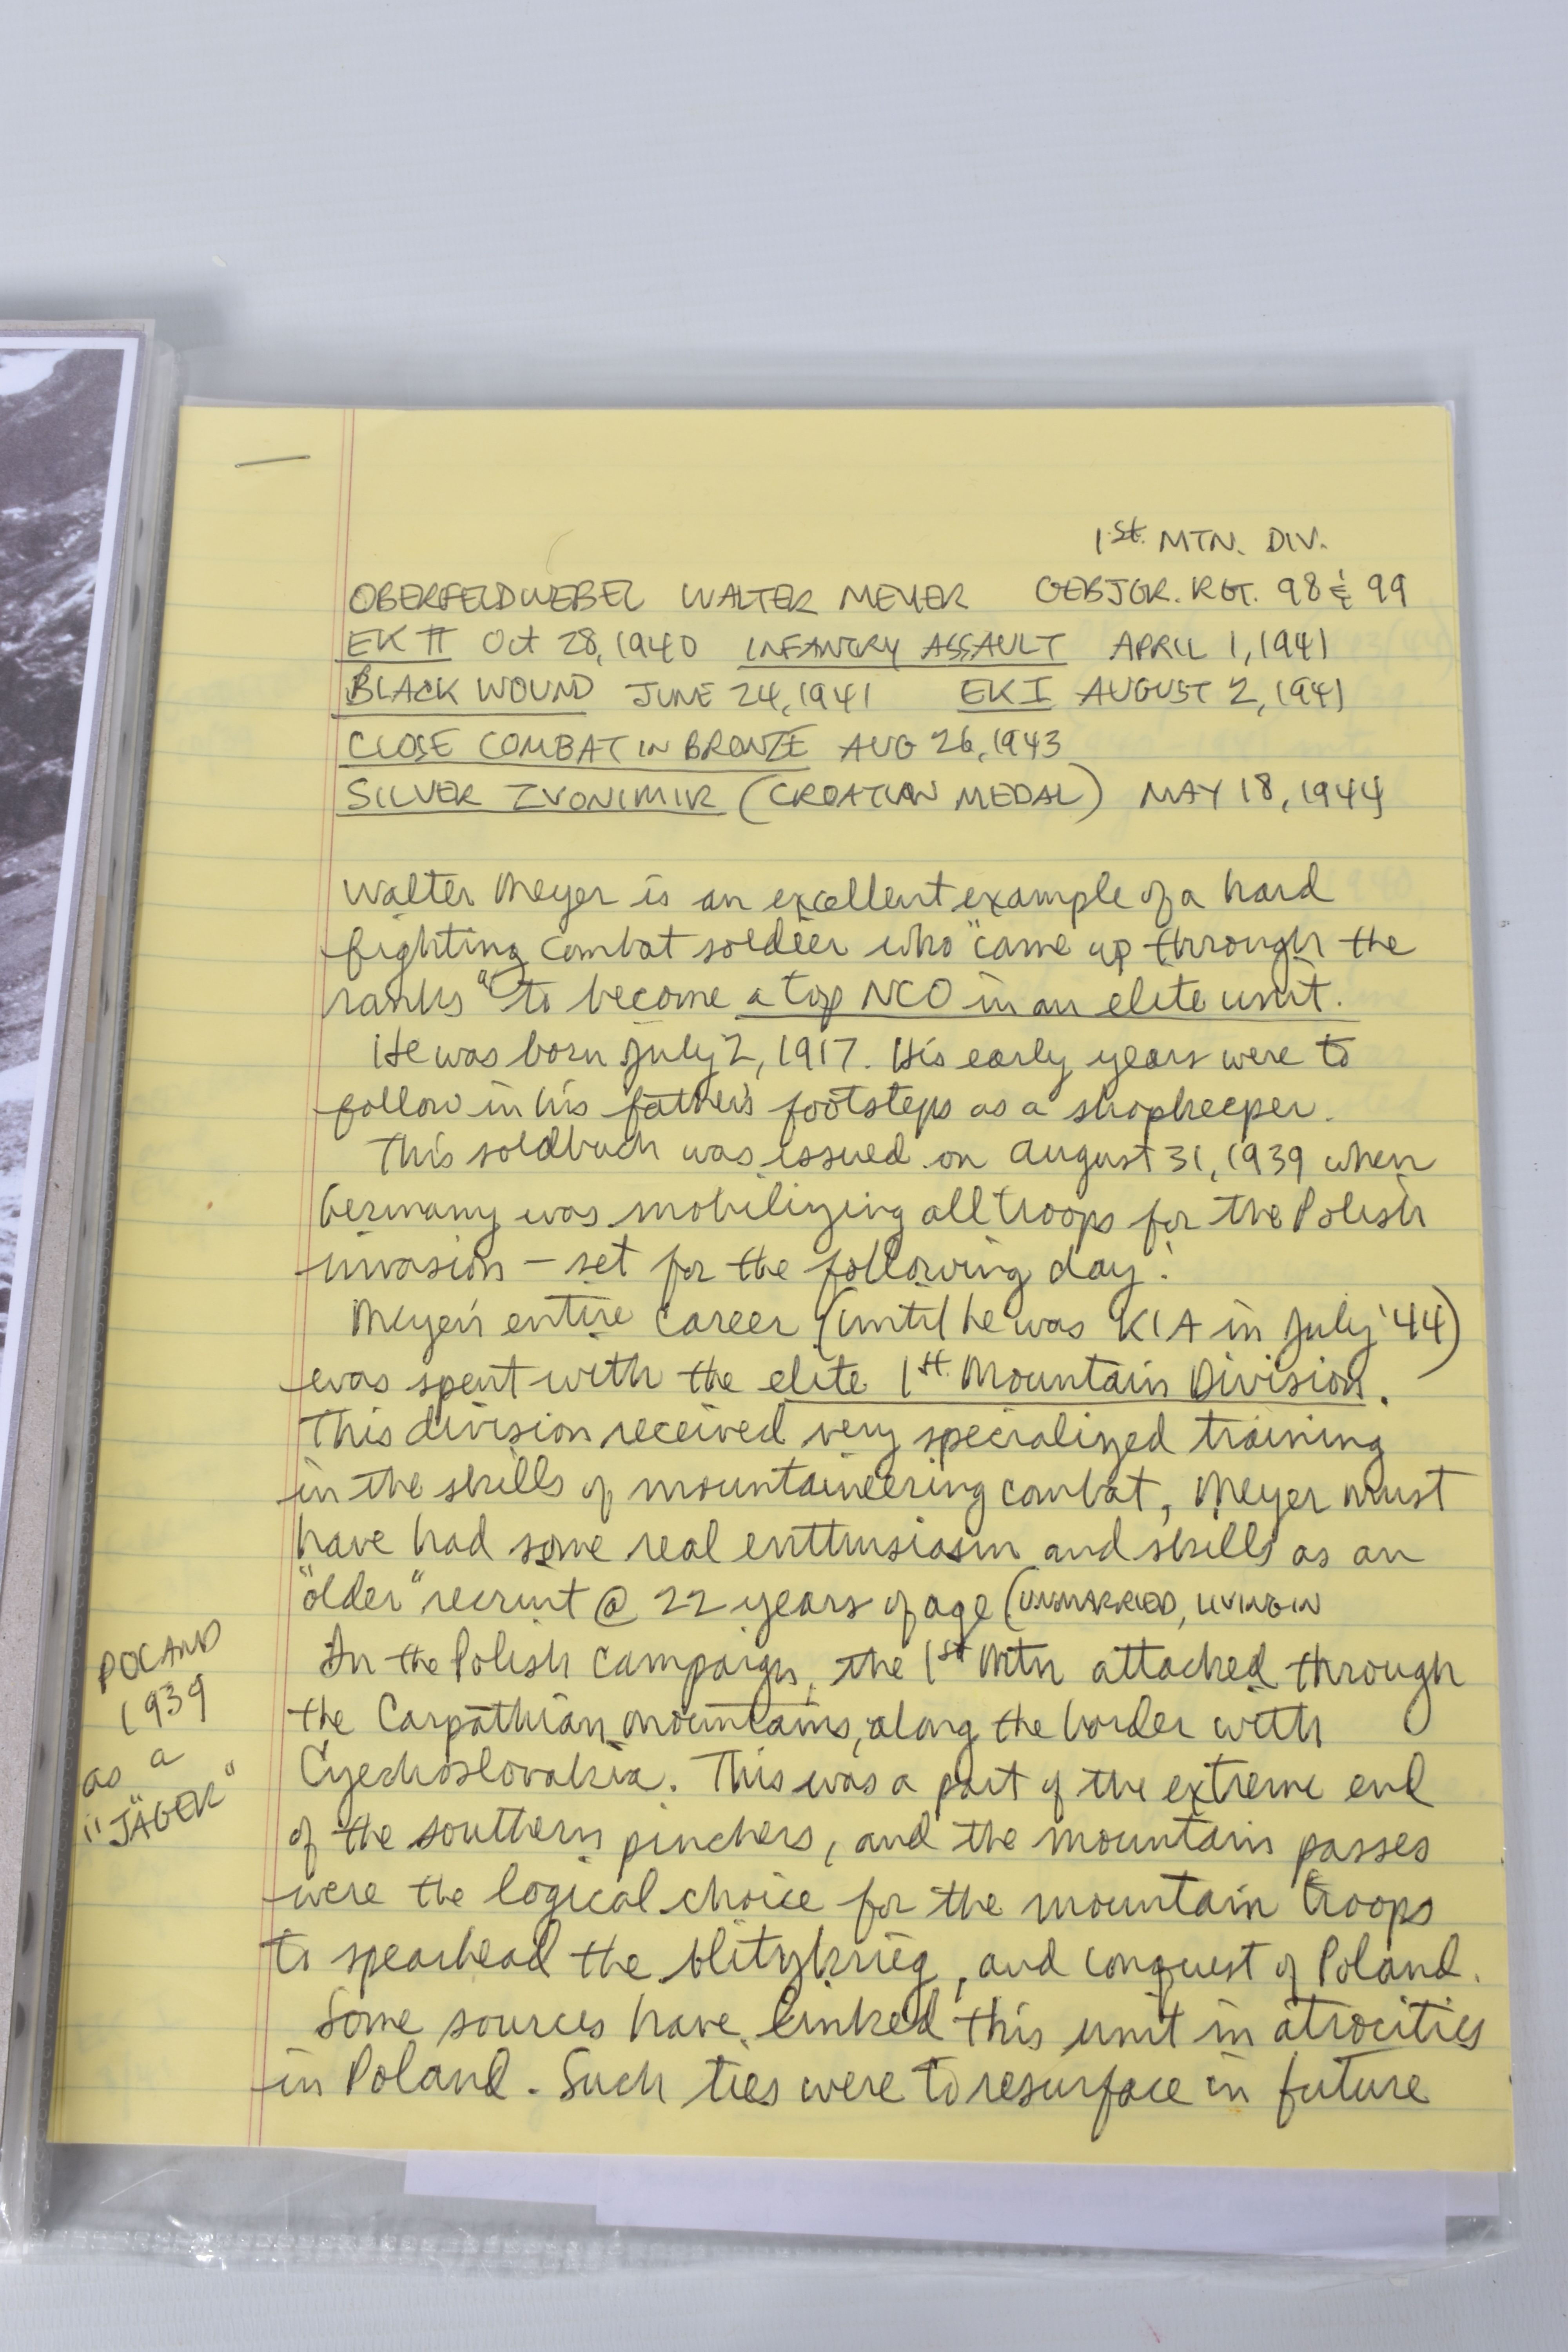 1st. MTN. DIV.
OBERFELDWEBEL WALTER MEYER GEBJGR. RGT. 98 & 99
EK II Oct 28, 1940 INFANTRY ASSAULT APRIL 1, 1941
BLACK WOUND JUNE 24, 1941 EK I AUGUST 2, 1941
CLOSE COMBAT IN BRONZE AUG 26, 1943
SILVER ZVONIMIR (CROATIAN MEDAL) MAY 18, 1944
Walter Meyer is an excellent example of a hard
fighting combat soldier who "came up through the
ranks" to become a top NCO in an elite unit.
He was born July 2, 1917. His early years were to
follow in his father's footsteps as a shopkeeper.
This soldbuch was issued on August 31, 1939 when
Germany was mobilizing all troops for the Polish
invasion – set for the following day!
Meyer's entire career (until he was KIA in July '44)
was spent with the elite 1st. Mountain Division.
This division received very specialized training
in the skills of mountaineering combat, Meyer must
have had some real enthusiasm and skills as an
"older" recruit @ 22 years of age (UNMARRIED, LIVING IN
In the Polish Campaign, the 1st Mtn attacked through
the Carpathian mountains, along the border with
Czechoslovakia. This was a part of the extreme end
of the southern pinchers, and the mountain passes
were the logical choice for the mountain troops
to spearhead the blitzkrieg, and conquest of Poland.
Some sources have linked this unit in atrocities
in Poland. Such ties were to resurface in future
POLAND
1939
as a
"JÄGER"